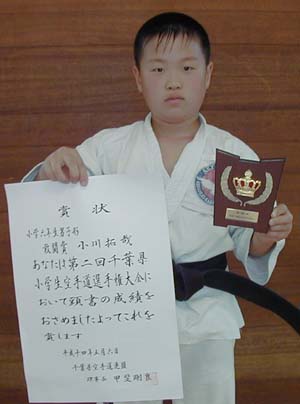 賞状
小学六年生男子形
敢闘賞 小川拓哉
あなたは第二回千葉県
小学生空手道選手権大会に
おいて頭書の成績を
おさめましたよってこれを
賞します
平成十四年五月六日
千葉県空手道連盟